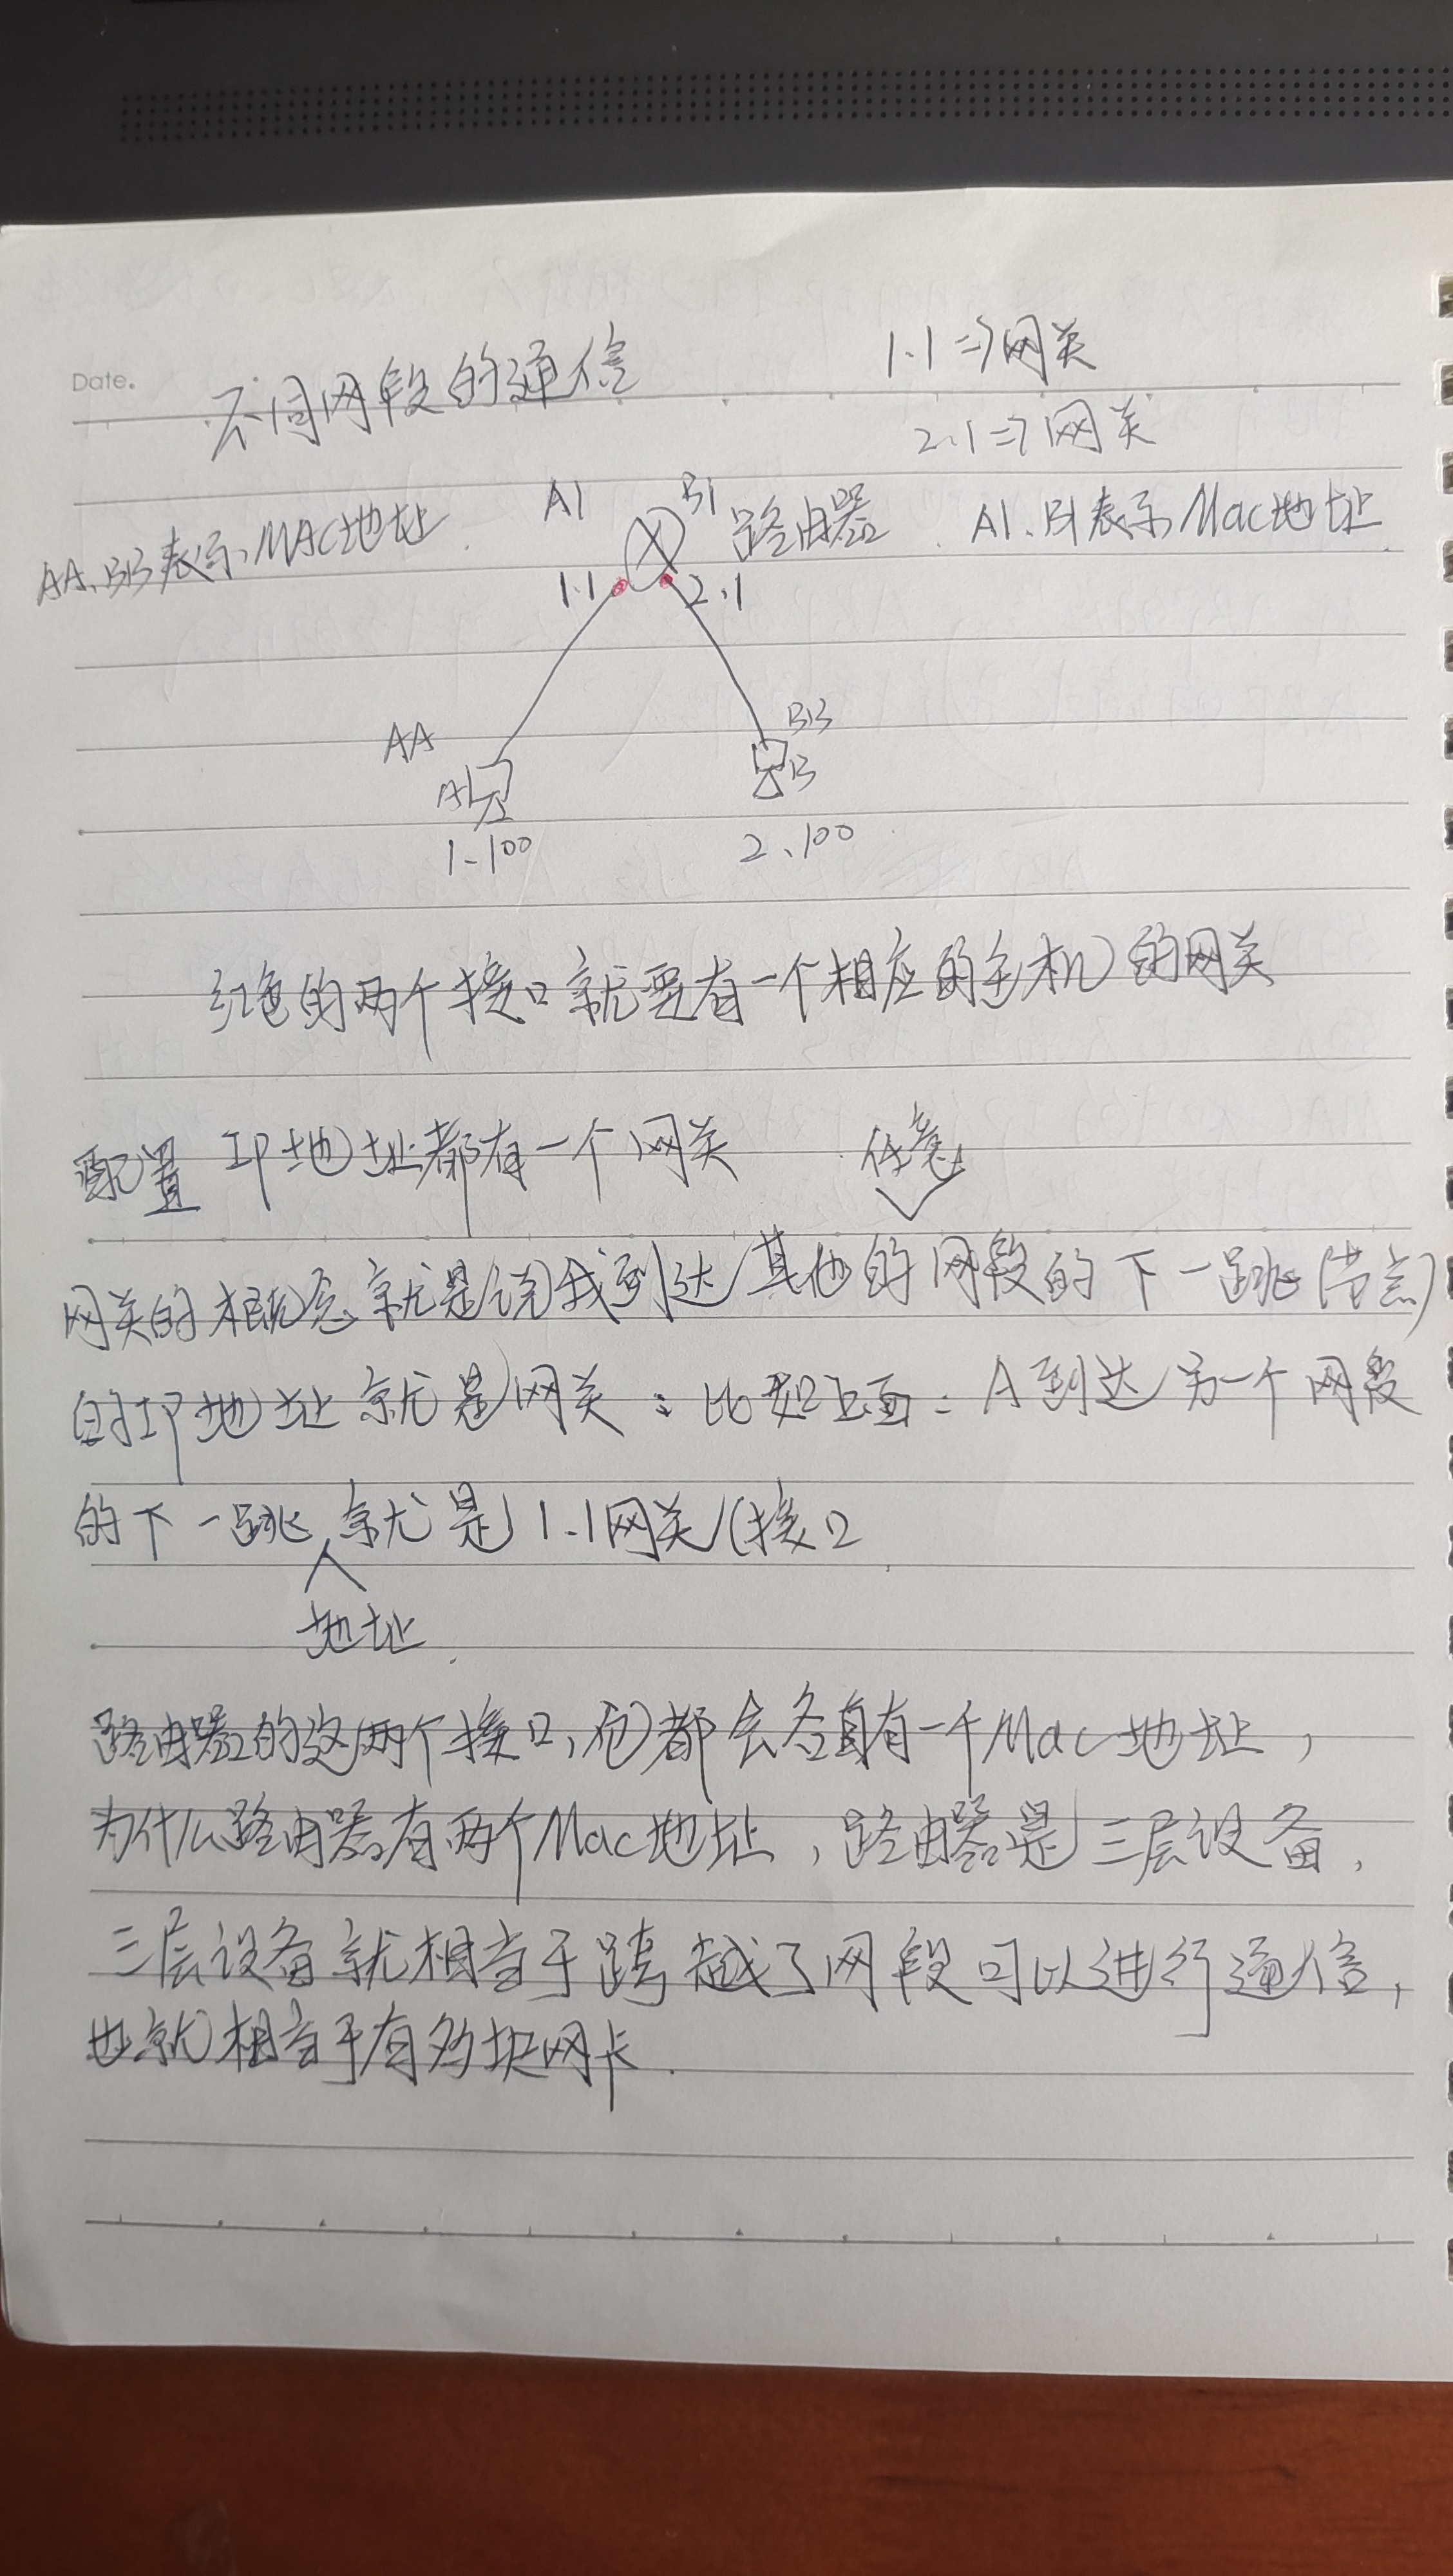 1.1=>网关
Date. 不同网段的通信
2.1=>网关
AA、BB表示MAC地址 A1 B1 路由器 A1、B1表示Mac地址
1.1 2.1
AA BB
A B
1.100 2.100
红色的两个接口就要有一个相应的主机的网关
配置 IP地址都有一个网关 任意
网关的概念就是说我到达其他的网段的下一跳(节点)
的IP地址就是网关:比如上面:A到达另一个网段
的下一跳 就是1.1网关(接口
地址
路由器的这两个接口,它都会各自有一个Mac地址,
为什么路由器有两个Mac地址,路由器是三层设备,
三层设备就相当于跨越了网段可以进行通信,
也就相当于有多块网卡.